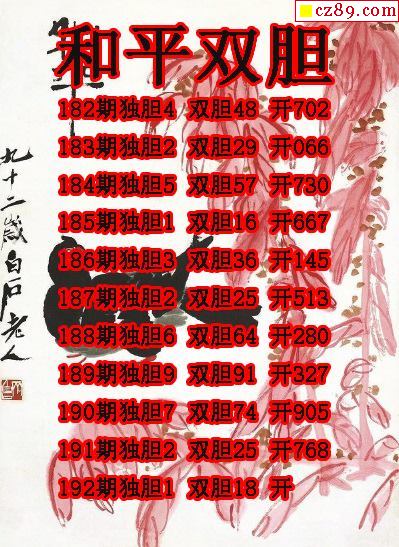 cz89.com
和平双胆
182期独胆4 双胆48 开702
183期独胆2 双胆29 开066
184期独胆5 双胆57 开730
185期独胆1 双胆16 开667
186期独胆3 双胆36 开145
187期独胆2 双胆25 开513
188期独胆6 双胆64 开280
189期独胆9 双胆91 开327
190期独胆7 双胆74 开905
191期独胆2 双胆25 开768
192期独胆1 双胆18 开
九十二歲白石老人